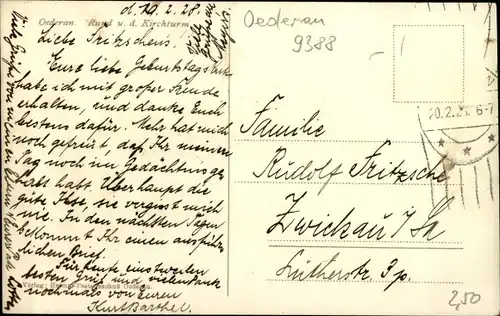 d. 20.2.28.
Oederan. Rund u. d. Kirchturm
Liebe Fritzschens!
Eure liebe Geburtstagskarte
habe ich mit großer Freude
erhalten, und danke Euch
bestens dafür. Mehr hat mich
noch gefreut, daß Ihr meinen
Tag noch im Gedächtnis ge-
habt habt. Überhaupt die
gute Ilse, sie vergißt mich
nie. In den nächsten Tagen
bekommt Ihr einen ausführ-
lichen Brief.
Für heute einstweilen
besten Gruß und vielen Dank
nochmals von Euren
Kurt Barthel.
Viele Grüße von meinen Eltern
Verlag:
Oederan
9388
20.2.28. 6-7
Familie
Rudolf Fritzsche
Zwickau i/Sa
Lutherstr. 3 p.
2,50